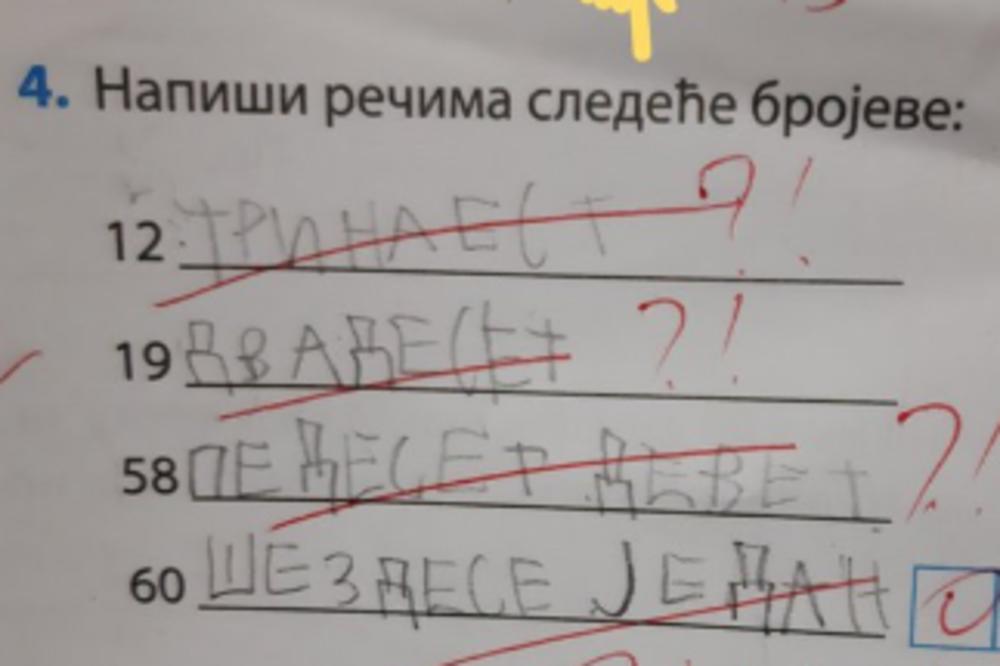 4. Напиши речима следеће бројеве:
12 ТРИНАЕСТ ?!
19 ДВАДЕСЕТ ?!
58 ПЕДЕСЕТ ДЕВЕТ ?!
60 ШЕЗДЕСЕ ЈЕДАН 0